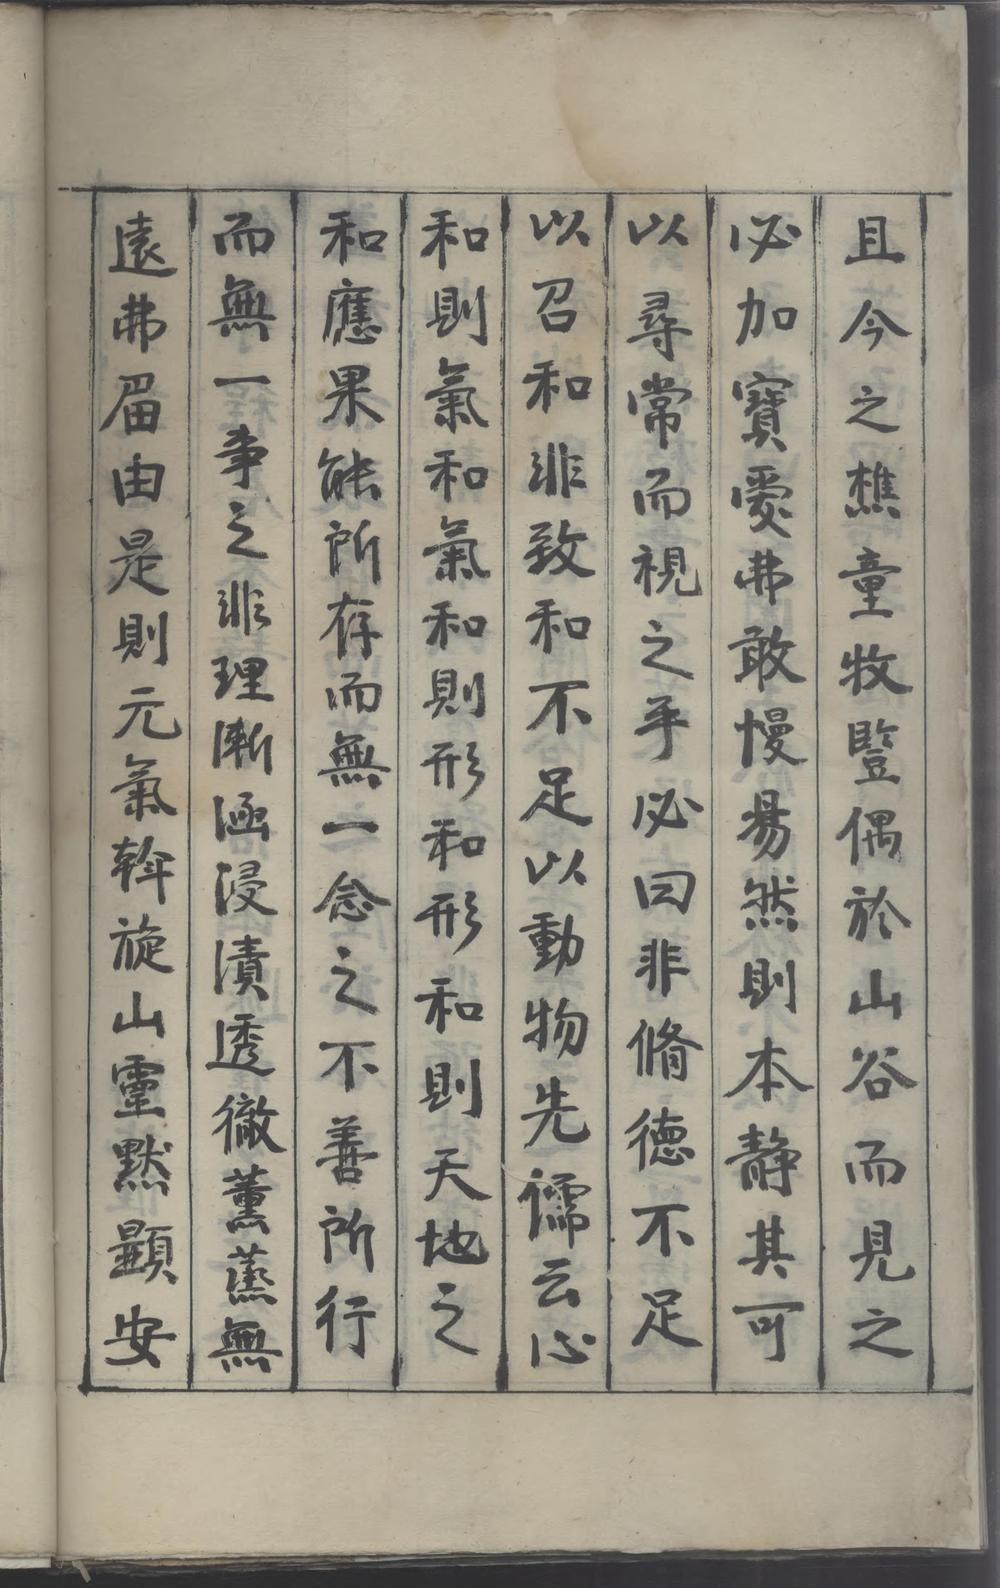 且今之樵童牧豎偶於山谷而見之
必加寶愛弗敢慢易然則本靜其可
以尋常而視之乎必曰非脩德不足
以召和非致和不足以動物先儒云心
和則氣和氣和則形和形和則天地之
和應果能所存而無一念之不善所行
而無一事之非理漸涵浸漬透徹薰蒸無
遠弗届由是則元氣斡旋山靈黙顯安